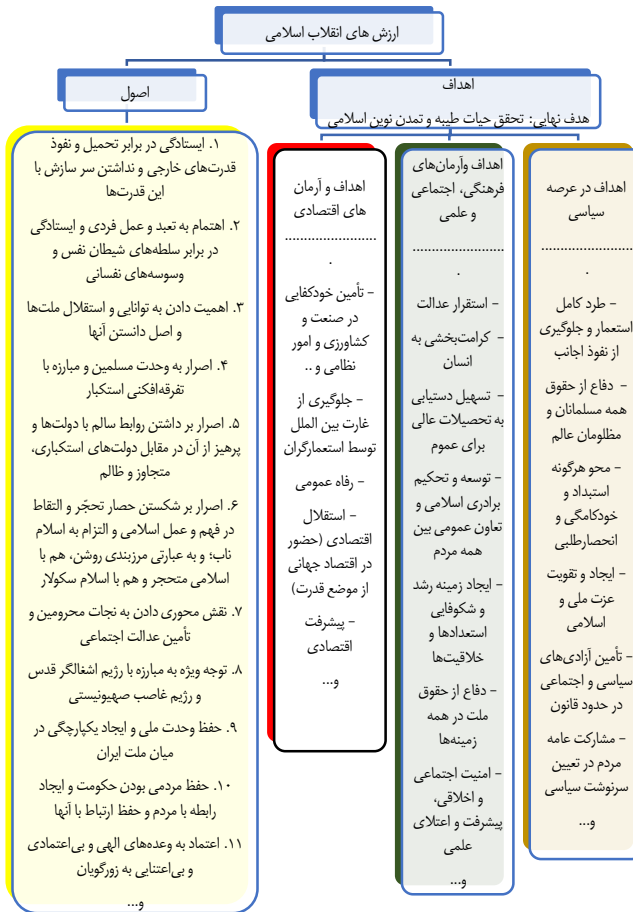 ارزش های انقلاب اسلامی
اهداف
هدف نهایی: تحقق حیات طیبه و تمدن نوین اسلامی
اصول
اهداف در عرصه
سیاسی
........................
.
- طرد کامل
استعمار و جلوگیری
از نفوذ اجانب
- دفاع از حقوق
همه مسلمانان و
مظلومان عالم
- محو هرگونه
استبداد و
خودکامگی و
انحصارطلبی
- ایجاد و تقویت
عزت ملی و
اسلامی
- تأمین آزادی‌های
سیاسی و اجتماعی
در حدود قانون
- مشارکت عامه
مردم در تعیین
سرنوشت سیاسی
و...
اهداف وآرمان‌های
فرهنگی، اجتماعی
و علمی
........................
.
- استقرار عدالت
- کرامت‌بخشی به
انسان
- تسهیل دستیابی
به تحصیلات عالی
برای عموم
- توسعه و تحکیم
برادری اسلامی و
تعاون عمومی بین
همه مردم
- ایجاد زمینه رشد
و شکوفایی
استعدادها و
خلاقیت‌ها
- دفاع از حقوق
ملت در همه
زمینه‌ها
- امنیت اجتماعی
و اخلاقی،
پیشرفت و اعتلای
علمی
و...
اهداف و آرمان
های اقتصادی
........................
.
- تأمین خودکفایی
در صنعت و
کشاورزی و امور
نظامی و ..
- جلوگیری از
غارت بین الملل
توسط استعمارگران
- رفاه عمومی
- استقلال
اقتصادی (حضور
در اقتصاد جهانی
از موضع قدرت)
- پیشرفت
اقتصادی
و...
۱. ایستادگی در برابر تحمیل و نفوذ
قدرت‌های خارجی و نداشتن سر سازش با
این قدرت‌ها
۲. اهتمام به تعبد و عمل فردی و ایستادگی
در برابر سلطه‌های شیطان نفس و
وسوسه‌های نفسانی
۳. اهمیت دادن به توانایی و استقلال ملت‌ها
و اصل دانستن آنها
۴. اصرار به وحدت مسلمین و مبارزه با
تفرقه‌افکنی استکبار
۵. اصرار بر داشتن روابط سالم با دولت‌ها و
پرهیز از آن در مقابل دولت‌های استکباری،
متجاوز و ظالم
۶. اصرار بر شکستن حصار تحجّر و التقاط
در فهم و عمل اسلامی و التزام به اسلام
ناب؛ و به عبارتی مرزبندی روشن، هم با
اسلامی متحجر و هم با اسلام سکولار
۷. نقش محوری دادن به نجات محرومین و
تأمین عدالت اجتماعی
۸. توجه ویژه به مبارزه با رژیم اشغالگر قدس
و رژیم غاصب صهیونیستی
۹. حفظ وحدت ملی و ایجاد یکپارچگی در
میان ملت ایران
۱۰. حفظ مردمی بودن حکومت و ایجاد
رابطه با مردم و حفظ ارتباط با آنها
۱۱. اعتماد به وعده‌های الهی و بی‌اعتمادی
و بی‌اعتنایی به زورگویان
و...